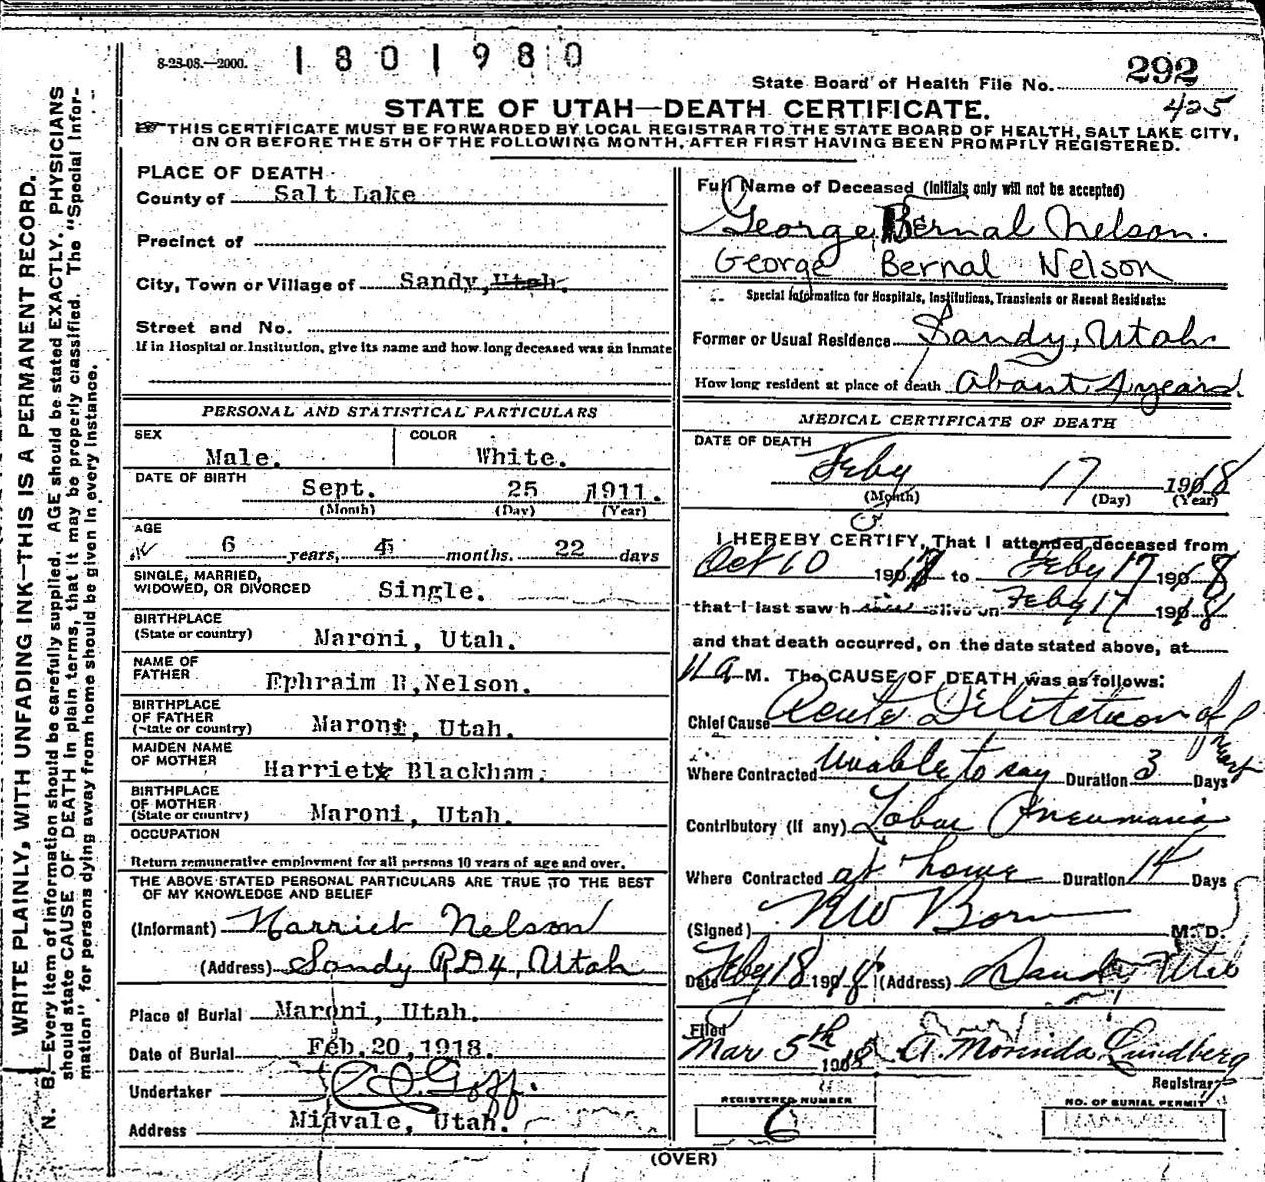 8-23-08.—2000.
1801980
State Board of Health File No. 292
425
STATE OF UTAH—DEATH CERTIFICATE.
THIS CERTIFICATE MUST BE FORWARDED BY LOCAL REGISTRAR TO THE STATE BOARD OF HEALTH, SALT LAKE CITY,
ON OR BEFORE THE 5TH OF THE FOLLOWING MONTH, AFTER FIRST HAVING BEEN PROMPTLY REGISTERED.
WRITE PLAINLY, WITH UNFADING INK—THIS IS A PERMANENT RECORD.
N. B.—Every item of information should be carefully supplied. AGE should be stated EXACTLY. PHYSICIANS
should state CAUSE OF DEATH in plain terms, that it may be properly classified. The "Special Infor-
mation" for persons dying away from home should be given in every instance.
PLACE OF DEATH
County of Salt Lake
Precinct of
City, Town or Village of Sandy, Utah.
Street and No.
If in Hospital or Institution, give its name and how long deceased was an inmate
PERSONAL AND STATISTICAL PARTICULARS
SEX COLOR
Male. White.
DATE OF BIRTH Sept. 25 1911.
(Month) (Day) (Year)
AGE
6 years, 4 months. 22 days
SINGLE, MARRIED,
WIDOWED, OR DIVORCED Single.
BIRTHPLACE
(State or country) Maroni, Utah.
NAME OF
FATHER Ephraim B, Nelson.
BIRTHPLACE
OF FATHER
(State or country) Maroni, Utah.
MAIDEN NAME
OF MOTHER Harriet Blackham.
BIRTHPLACE
OF MOTHER
(State or country) Maroni, Utah.
OCCUPATION
Return remunerative employment for all persons 10 years of age and over.
THE ABOVE STATED PERSONAL PARTICULARS ARE TRUE TO THE BEST
OF MY KNOWLEDGE AND BELIEF
(Informant) Harriet Nelson
(Address) Sandy RD4, Utah
Place of Burial Maroni, Utah.
Date of Burial Feb. 20, 1918.
Undertaker Goff.
Address Midvale, Utah.
Full Name of Deceased (Initials only will not be accepted)
George Bernal Nelson.
George Bernal Nelson
Special Information for Hospitals, Institutions, Transients or Recent Residents:
Former or Usual Residence Sandy, Utah
How long resident at place of death About 4 years.
MEDICAL CERTIFICATE OF DEATH
DATE OF DEATH
Feby 17 1918
(Month) (Day) (Year)
I HEREBY CERTIFY, That I attended deceased from
Oct 10 1917 to Feby 17 1918
that I last saw h alive on Feby 17 1918
and that death occurred, on the date stated above, at
11 A M. The CAUSE OF DEATH was as follows:
Chief Cause Acute Dilitation of Heart
Where Contracted Unable to say Duration 3 Days
Contributory (if any) Lobar Pneumonia
Where Contracted at home Duration 14 Days
(Signed) M. D.
Date Feby 18 1918 (Address) Sandy Utah
Filed
Mar 5th 1918 A. Morinda Lundberg
Registrar
REGISTERED NUMBER
6
NO. OF BURIAL PERMIT
(OVER)